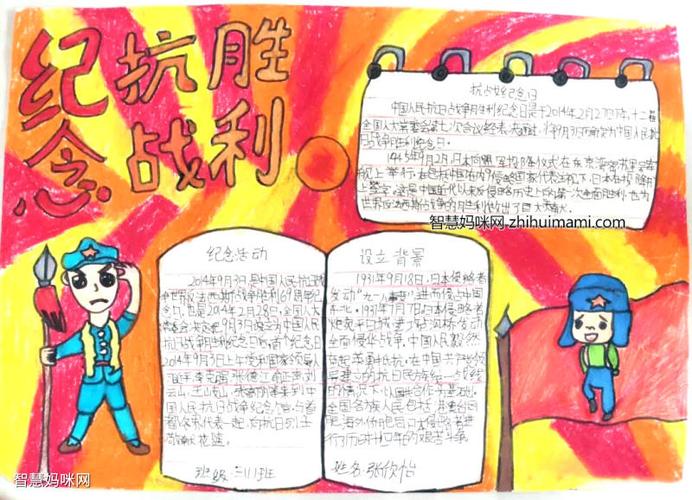 纪念
抗战
胜利
抗战纪念日
中国人民抗日战争胜利纪念日是于2014年2月27日下午,十二届
全国人大常委会第七次会议经表决通过,将9月3日确定为中国人民抗
日战争胜利纪念日。
1945年9月2日,日本向盟军投降仪式在东京湾密苏里号军舰
上举行。在包括中国在内的9个
上签字。这是中国近代以来反侵略历史上的第一次全面胜利,也为
世界反法西斯战争的胜利做出了巨大贡献。
智慧妈咪网 zhihuimami.com
纪念活动
2014年9月3日是中国人民抗日战
争暨世界反法西斯战争胜利69周年纪
念日,也是2014年2月28日,全国人大
常委会决定把9月3日确立为中国人民
抗日战争胜利纪念日后首个纪念日
2014年9月3日上午党和国家领导人
习近平李克强张德江俞正声刘
云山,王岐山,张高丽等来到中
国人民抗日战争纪念馆,与首
都各界代表一起,向抗日烈士
敬献花篮。
班级 三川班
设立背景
1931年9月18日,日本侵略者
发动“九一八事变”,进而侵占中国
东北。1937年7月7日,日本侵略者
炮轰宛平城,制造卢沟桥事变,发动
全面侵华战争,中国人民毅然
奋起英勇抵抗。在中国共产党领
导建立的抗日民族统一战线
的情况下,以国共合作为基础,
全国各族人民包括
胞,海外侨胞同日本侵略者进
行了历时十四年的艰苦斗争
姓名:张欣怡
智慧妈咪网